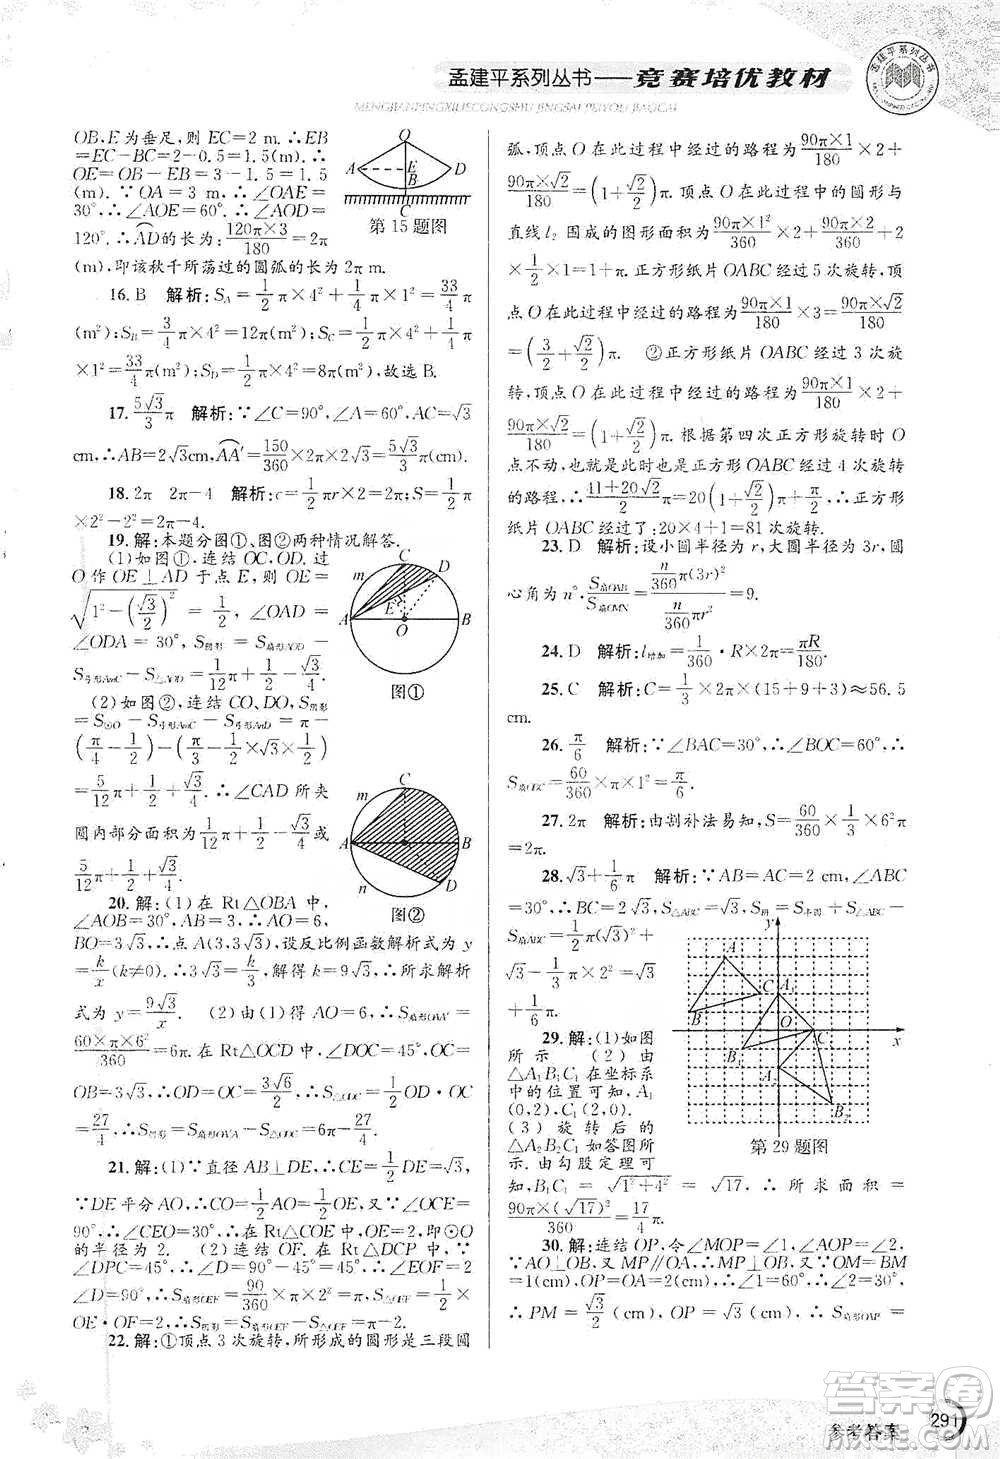 孟建平系列丛书——竞赛培优教材
MENGJIANPINGXILIECONGSHU JINGSAI PEIYOU JIAOCAI
孟建平系列丛书
OB,E 为垂足,则 EC=2 m.∴EB
=EC-BC=2-0.5=1.5(m).∴
OE=OB-EB=3-1.5=1.5
(m).∵OA=3 m,∴∠OAE=
30°,∴∠AOE=60°.∴∠AOD=
120°.∴AD的长为:120π×3/180=2π
(m),即该秋千所荡过的圆弧的长为 2π m.
O
A
E
D
B
C
第 15 题图
16. B 解析:S_A=1/2π×4²+1/4π×1²=33/4π
(m²);S_B=3/4π×4²=12π(m²);S_C=1/2π×4²+1/4π
×1²=33/4π(m²);S_D=1/2π×4²=8π(m²),故选 B.
17. 5√3/3π 解析:∵∠C=90°,∠A=60°,AC=√3
cm,∴AB=2√3cm,AA′=150/360×2π×2√3=5√3/3π.
18. 2π 2π-4 解析:c=1/2πr×2=2π;S=1/2π
×2²-2²=2π-4.
19. 解:本题分图①、图②两种情况解答.
(1)如图①,连结 OC,OD,过
O 作 OE⊥AD 于点 E,则 OE=
√(1²-(√3/2)²)=1/2,∠OAD=
∠ODA=30°,S阴影=S扇形AOD-
S弓形AmC-S△AOD=1/12π+1/2-√3/4.
m
C
D
A
E
O
B
图①
(2)如图②,连结 CO,DO,S阴影
=S⊙O-S弓形AmC-S弓形AnD=π-
(π/4-1/2)-(π/3-1/2×√3×1/2)=
5/12π+1/2+√3/4.∴∠CAD 所夹
圆内部分面积为1/12π+1/2-√3/4或
5/12π+1/2+√3/4.
m
C
A
B
n
D
图②
20. 解:(1)在 Rt△OBA 中,
∠AOB=30°,AB=3,∴AO=6,
BO=3√3,∴点 A(3,3√3),设反比例函数解析式为 y
=k/x(k≠0),∴3√3=k/3,解得 k=9√3,∴所求解析
式为 y=9√3/x. (2)由(1)得 AO=6,∴S扇形OAA′=
60×π×6²/360=6π.在 Rt△OCD 中,∠DOC=45°,OC=
OB=3√3,∴OD=OC·√2/2=3√3×√2/2=3√6/2,∴S△ODC
=27/4,∴S阴影=S扇形OAA′-S△ODC=6π-27/4.
21. 解:(1)∵直径 AB⊥DE,∴CE=1/2DE=√3.
∵DE 平分 AO,∴CO=1/2AO=1/2OE,又∵∠OCE=
90°,∴∠CEO=30°.在 Rt△COE 中,OE=2,即⊙O
的半径为 2. (2)连结 OF.在 Rt△DCP 中,∵
∠DPC=45°,∴∠D=90°-45°=45°.∴∠EOF=2
∠D=90°,∴S扇形OEF=90/360×π×2²=π,S△OEF=1/2×
OE·OF=2.∴S阴影=S扇形OEF-S△OEF=π-2.
22. 解:①顶点 3 次旋转,所形成的图形是三段圆
弧,顶点 O 在此过程中经过的路程为90π×1/180×2+
90π×√2/180=(1+√2/2)π,顶点 O 在此过程中的图形与
直线 l₂ 围成的图形面积为90π×1²/360×2+90π×(√2)²/360+2
×1/2×1×1=1+π.正方形纸片 OABC 经过 5 次旋转,顶
点 O 在此过程中经过的路程为90π×1/180×3+90π×√2/180
=(3/2+√2/2)π. ②正方形纸片 OABC 经过 3 次旋
转,顶点 O 在此过程中经过的路程为90π×1/180×2+
90π×√2/180=(1+√2/2)π,根据第四次正方形旋转时 O
点不动,也就是此时正方形 OABC 经过 4 次旋转
的路程,∴41+20√2/2π=20(1+√2/2)π+1/2π.∴正方形
纸片 OABC 经过了:20×4+1=81 次旋转.
23. D 解析:设小圆半径为 r,大圆半径为 3r,圆
心角为 n°,S扇OAB/S扇OMN=(n/360 π(3r)²)/(n/360 πr²)=9.
24. D 解析:l增加=1/360·R×2π=πR/180.
25. C 解析:C=1/3×2π×(15+9+3)≈56.5
cm.
26. π/6 解析:∵∠BAC=30°,∴∠BOC=60°,∴
S扇BOC=60/360×π×1²=π/6.
27. 2π 解析:由割补法易知,S=60/360×1/3×6²π
=2π.
28. √3+1/6π 解析:∵AC=2√3,∠BAC
=30°,∴BC=2,S△ABC=2√3,∵S阴=S半圆+S△ABC
-S扇ABC=1/2π(√3)²+2
√3-1/3π×2²=√3+
1/6π.
29. 解:(1)如图
所示 (2)由
△A₁B₁C₁ 在坐标系
中的位置可知,A₁
(0,2),C₁(2,0).
(3)旋转后的
△A₂B₂C₂ 如答图所
示.由勾股定理可
知,B₁C₁=√(1²+4²)=√17,∴所求面积=
90π×(√17)²/360=17/4π.
y
A
C
A₁
B
O
C₁
x
B₁
A₂
B₂
第 29 题图
30. 解:连结 OP,令∠MOP=∠1,∠POA=∠2,
∵AO⊥OB,又 MP∥OA,∴MP⊥OB,又∵OM=BM
=1(cm),OP=OA=2(cm),∴∠1=60°,∴∠2=30°,
∴PM=√3/2(cm),OP=√3(cm),∴S扇形OAP=
答案圈
MXQE.COM
参考答案
291